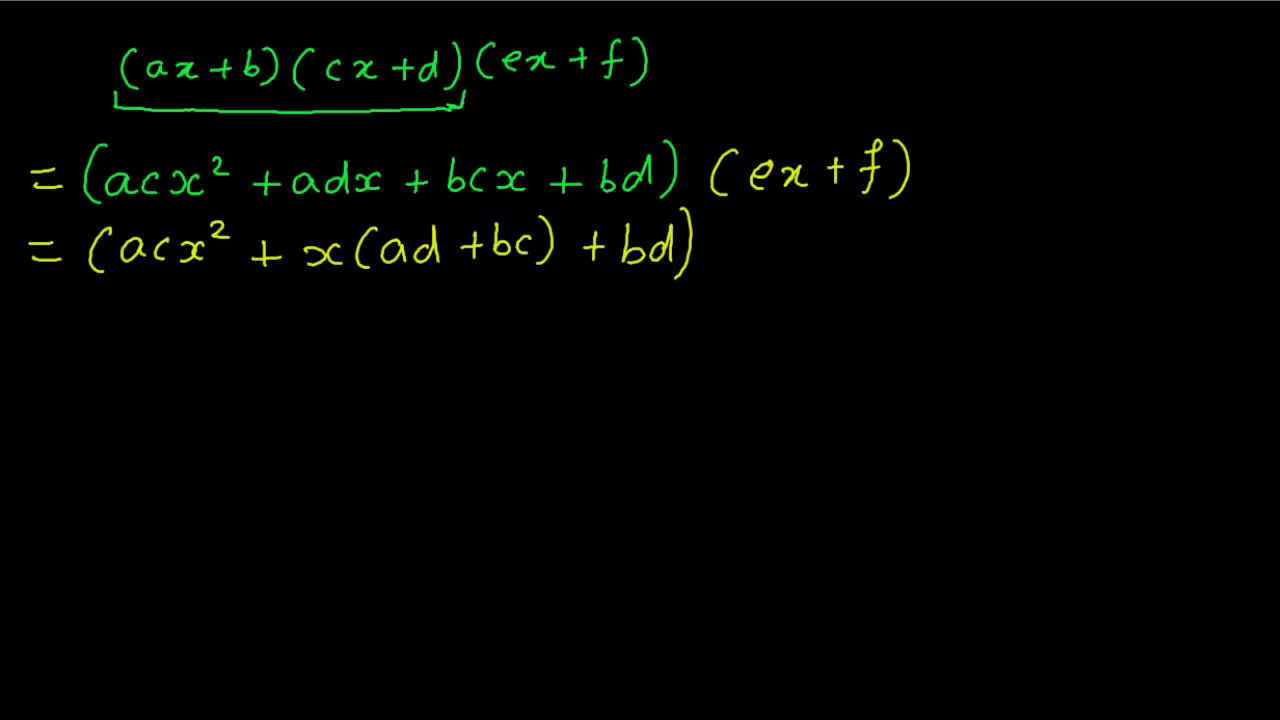 (ax+b)(cx+d)(ex+f)
= (acx² + adx + bcx + bd) (ex + f)
= (acx² + x(ad + bc) + bd)